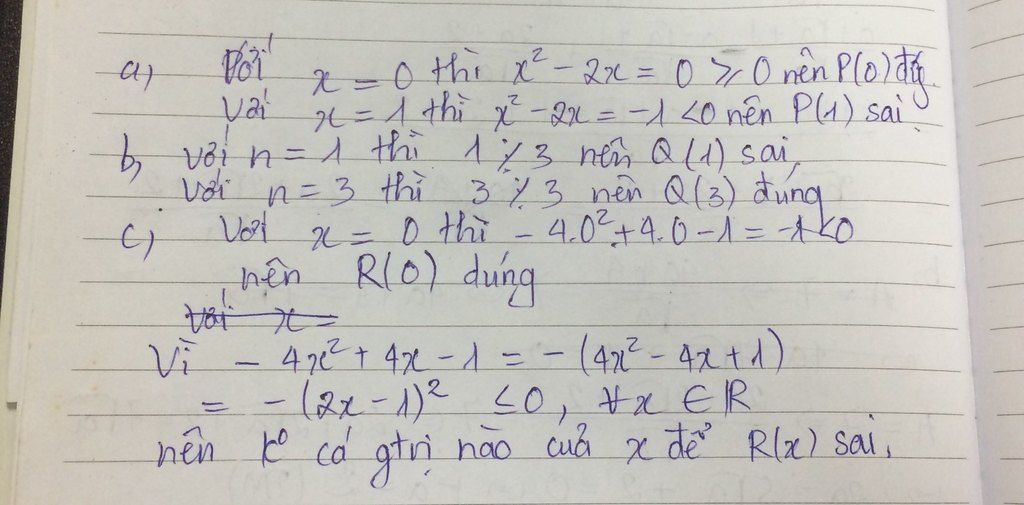 a, Với x = 0 thì x² - 2x = 0 ⩾ 0 nên P(0) đúng
Với x = 1 thì x² - 2x = -1 < 0 nên P(1) sai.
b, với n = 1 thì 1 ⋮̸ 3 nên Q(1) sai,
với n = 3 thì 3 ⋮ 3 nên Q(3) đúng
c, Với x = 0 thì - 4.0² + 4.0 - 1 = -1 < 0
nên R(0) dúng
với x =
Vì - 4x² + 4x - 1 = - (4x² - 4x + 1)
= - (2x - 1)² ≤ 0, ∀x ∈ R
nên k⁰ có gtrị nào cuả x để R(x) sai,